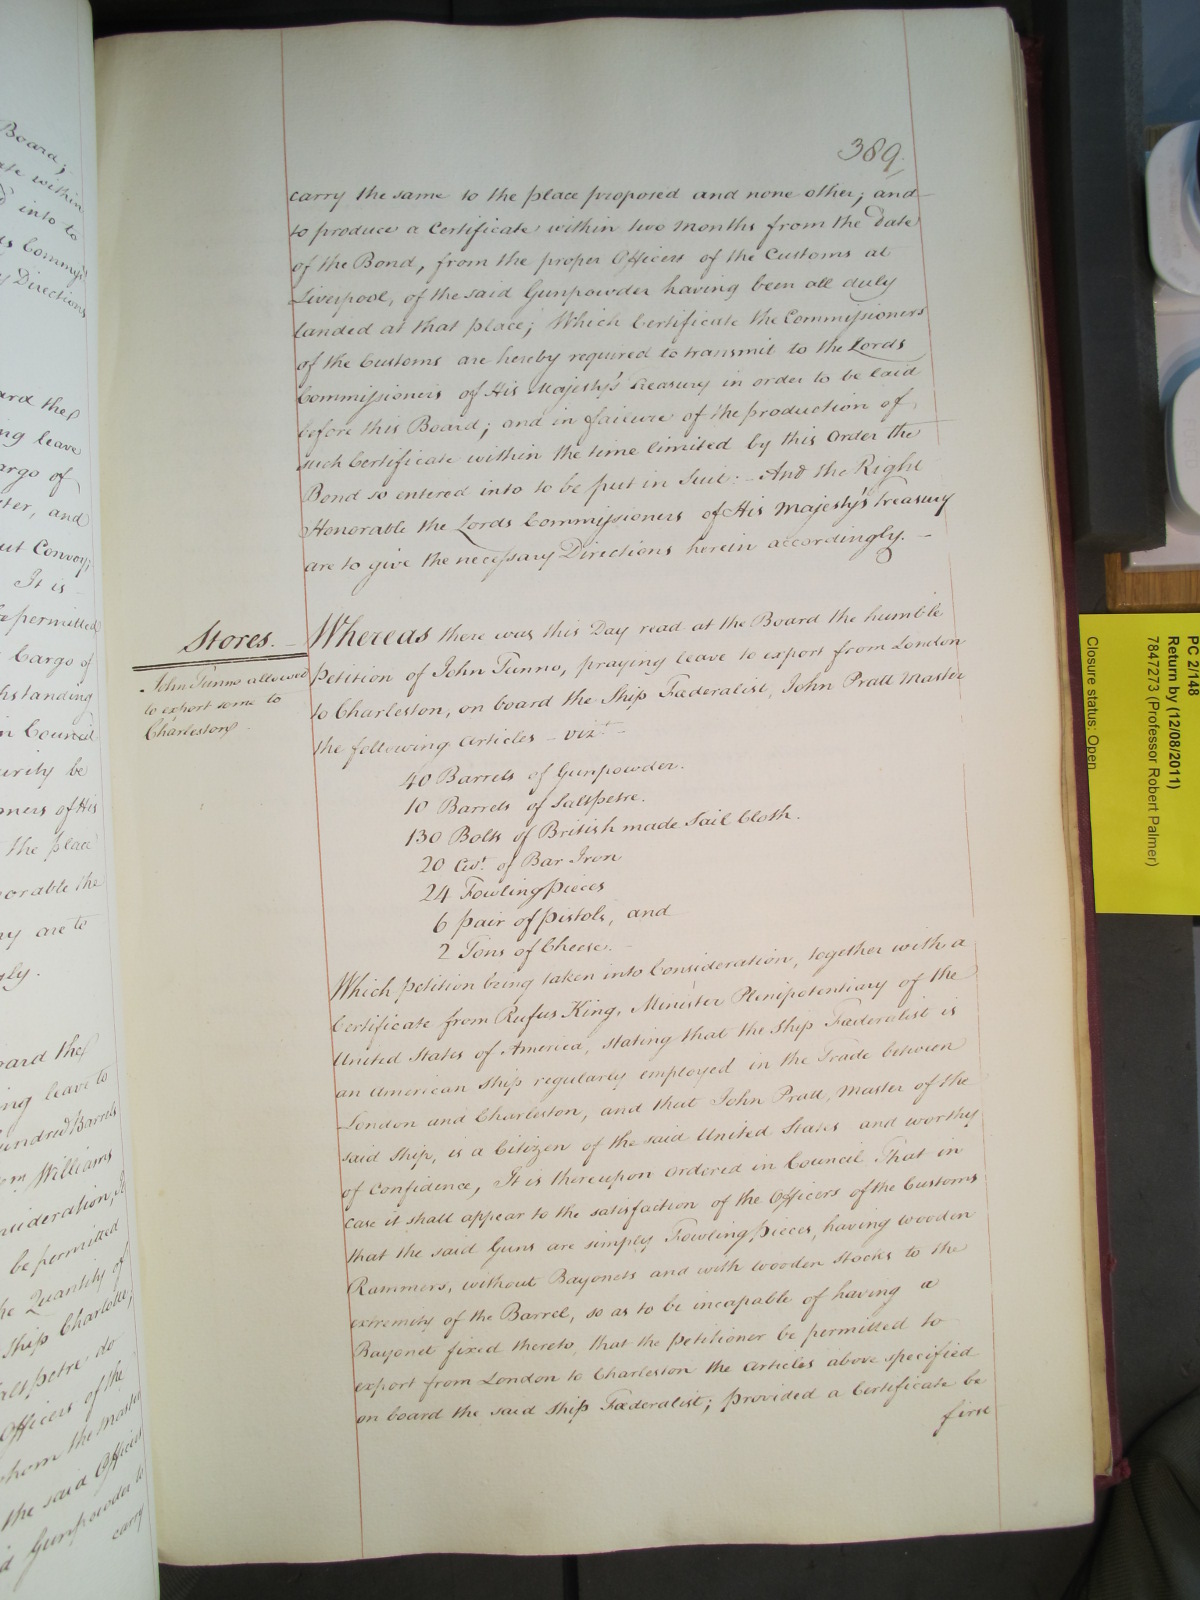 389.
carry the same to the place proposed and none other; and
to produce a Certificate within two Months from the Date
of the Bond, from the proper Officers of the Customs at
Liverpool, of the said Gunpowder having been all duly
landed at that place; Which Certificate the Commissioners
of the Customs are hereby required to transmit to the Lords
Commissioners of His Majesty's Treasury in order to be laid
before this Board; and in failure of the production of
such Certificate within the time limited by this Order the
Bond so entered into to be put in Suit: - And the Right
Honorable the Lords Commissioners of His Majesty's Treasury
are to give the necessary Directions herein accordingly. -
Stores. -
John Tunno allowed
to export some to
Charleston.
Whereas there was this Day read at the Board the humble
Petition of John Tunno, praying leave to export from London
to Charleston, on board the Ship Fœderalist, John Pratt Master
the following Articles - vizt. -
40 Barrels of Gunpowder.
10 Barrels of Saltpetre.
130 Bolts of British made Sail Cloth.
20 Cwt. of Bar Iron
24 Fowling Pieces
6 pair of Pistols, and
2 Tons of Cheese. -
Which Petition being taken into Consideration, together with a
Certificate from Rufus King, Minister Plenipotentiary of the
United States of America, stating that the Ship Fœderalist is
an American Ship regularly employed in the Trade between
London and Charleston, and that John Pratt, Master of the
said Ship, is a Citizen of the said United States and worthy
of Confidence, It is thereupon Ordered in Council That in
case it shall appear to the satisfaction of the Officers of the Customs
that the said Guns are simply Fowling Pieces, having wooden
Rammers, without Bayonets and with wooden Stocks to the
extremity of the Barrel, so as to be incapable of having a
Bayonet fixed thereto, that the Petitioner be permitted to
export from London to Charleston the Articles above specified
on board the said Ship Fœderalist; provided a Certificate be
first
Board;
within
into to
Commrs.
Directions
leave
Cargo of
and
Convoy;
It is
be permitted
Cargo of
in Council
be
of His
the place
the
are to
leave to
Hundred Barrels
Williams
Consideration, It
be permitted
the Quantity of
Ship Charlotte,
Saltpetre do
Officers of the
whom the Master
the said Officers
Gunpowder to
carry
PC 2/148
Return by (12/08/2011)
7847273 (Professor Robert Palmer)
Closure status: Open